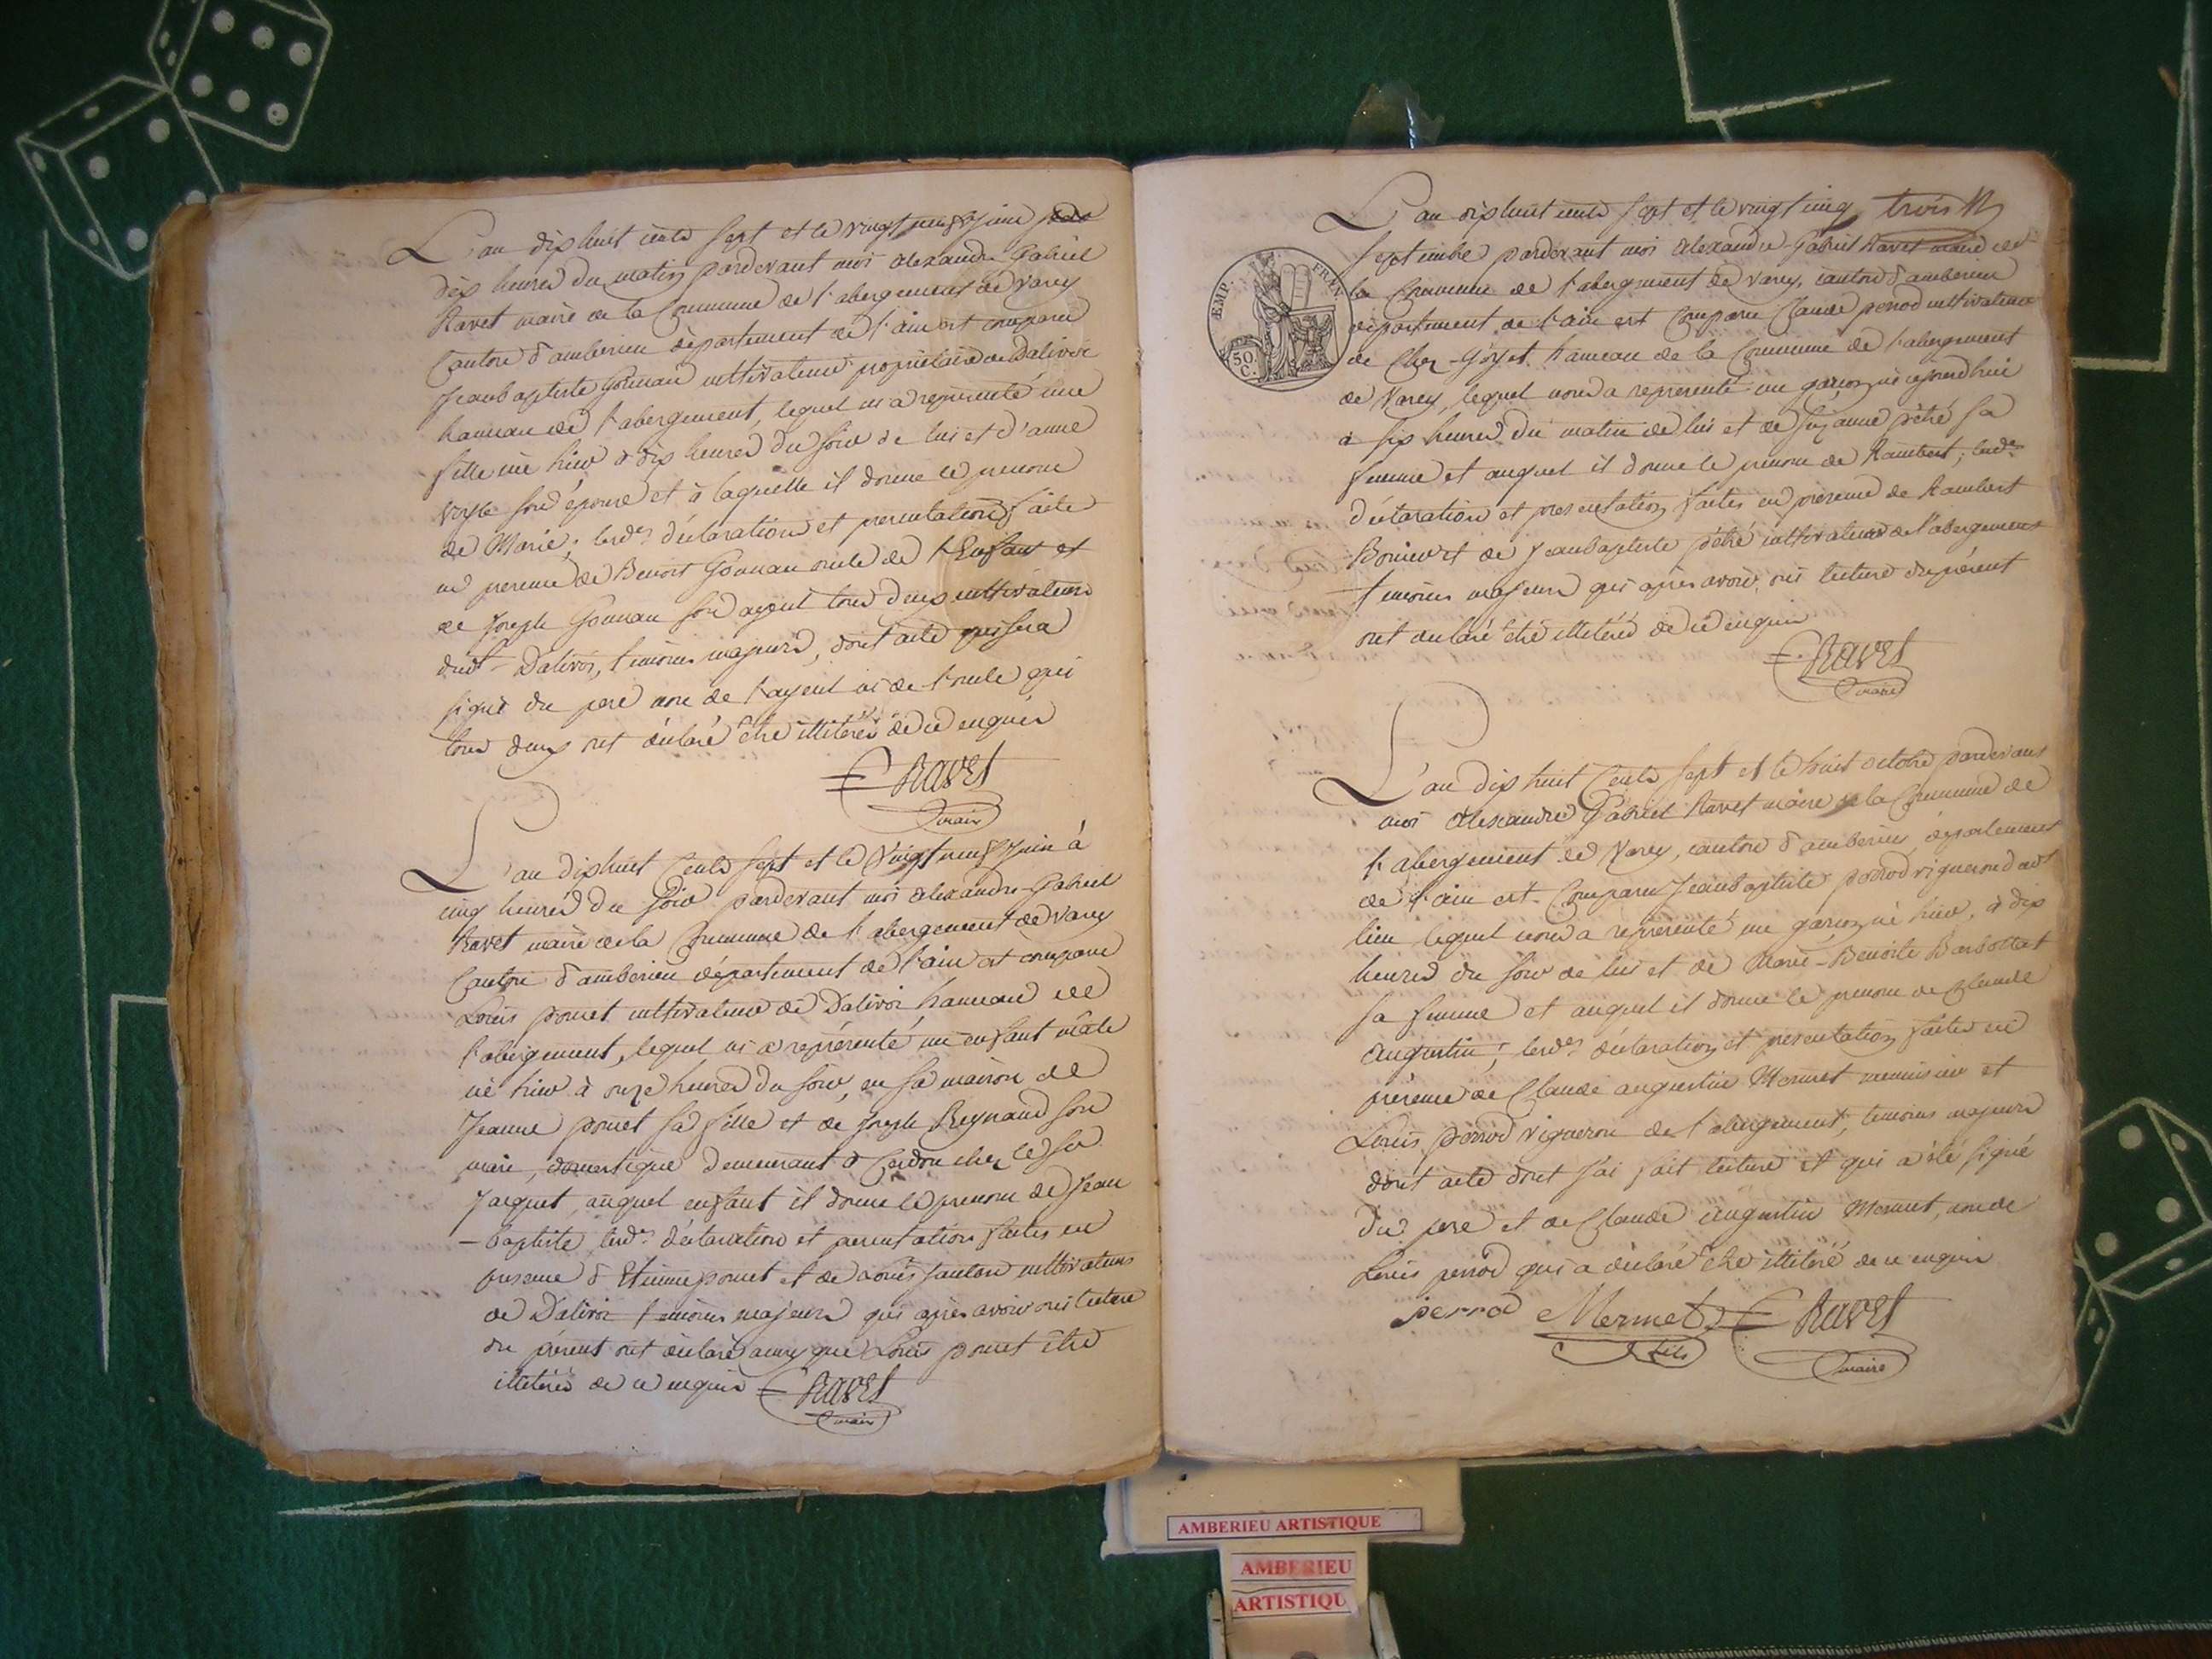 L'an dix huit cents sept et le vingt neuf Juin
dix heures du matin pardevant moi alexandre Gabriel
Ravet maire de la Commune de l'abergement de varey
Canton d'amberieu département de l'ain est comparu
Jeanbaptiste Gonnau cultivateur propriétaire de Dalivoi
hameau de l'abergement, lequel m'a représenté une
fille née hier à dix heures du soir de lui et d'anne
son épouse et à laquelle il donne le prenom
de Marie; lesd.es déclaration et presentation faite
en presence de Benoit Gonnau oncle de l'Enfant et
de Joseph Gonnau son ayeul tous deux cultivateurs
dud.t Dalivoi, temoins majeurs, dont acte qui sera
signé du pere non de l'ayeul ni de l'oncle qui
tous deux ont déclaré être illiterés de ce enquis
Ravet
maire
L'an dixhuit Cents sept et le Vingt neuf Juin à
cinq heures du soir pardevant moi alexandre-Gabriel
Ravet maire de la Commune de l'abergement de varey
Canton d'amberieu département de l'ain est comparu
Louis pomet cultivateur de Dalivoi hameau de
l'abergement, lequel m'a représenté un enfant mâle
né hier à onze heures du soir, en sa maison de
Jeanne pomet sa fille et de joseph Reynaud son
mari, domestique demeurant à Cerdon chez le Sr
Jacquet, auquel enfant il donne le prenom de Jean
-baptiste lesd.es déclaration et presentation faites en
presence d'Etienne pomet et de cultivateurs
de Dalivoi temoins majeurs qui après avoir oui lecture
du présent ont déclaré ainsy que Louis pomet être
illiterés de ce enquis Ravet
maire
L'an dixhuit cents sept et le vingt cinq
septembre pardevant moi alexandre-Gabriel Ravet maire de
la Commune de l'abergement de varey, canton d'amberieu
département de l'ain est Comparu Claude perrod cultivateur
de Chez-Goyet hameau de la Commune de l'abergement
de Varey, lequel nous a représenté un garçon né cejourdhui
à six heures du matin de lui et de Suzanne pétré sa
femme et auquel il donne le prenom de Rambert; lesd.es
déclaration et presentation faites en présence de Rambert
et de Jeanbaptiste pétré cultivateurs de l'abergement
temoins majeurs qui après avoir oui lecture du présent
ont declaré être illiterés de ce enquis
Ravet
maire
EMP. FRAN.
50 C.
L'an dix huit Cents sept et le huit octobre pardevant
moi Alexandre Gabriel Ravet maire de la Commune de
l'abergement de Varey, canton d'amberieu département
de l'ain est Comparu Jeanbaptiste perrod vigneron dud.t
lieu lequel nous a représenté un garçon né hier, à dix
heures du soir de lui et de Marie-Benoite Barbollat
sa femme et auquel il donne le prenom de Claude
Augustin; lesd.es déclaration et presentation faites en
présence de Claude augustin Mermet menuisier et
Louis perrod vigneron de l'abergement, temoins majeurs
dont acte dont j'ai fait lecture et qui a été signé
du pere et de Claude augustin Mermet, non de
Louis perrod qui a déclaré être illiteré de ce enquis
perrod Mermet Ravet
fils maire
AMBERIEU ARTISTIQUE
AMBERIEU
ARTISTIQU